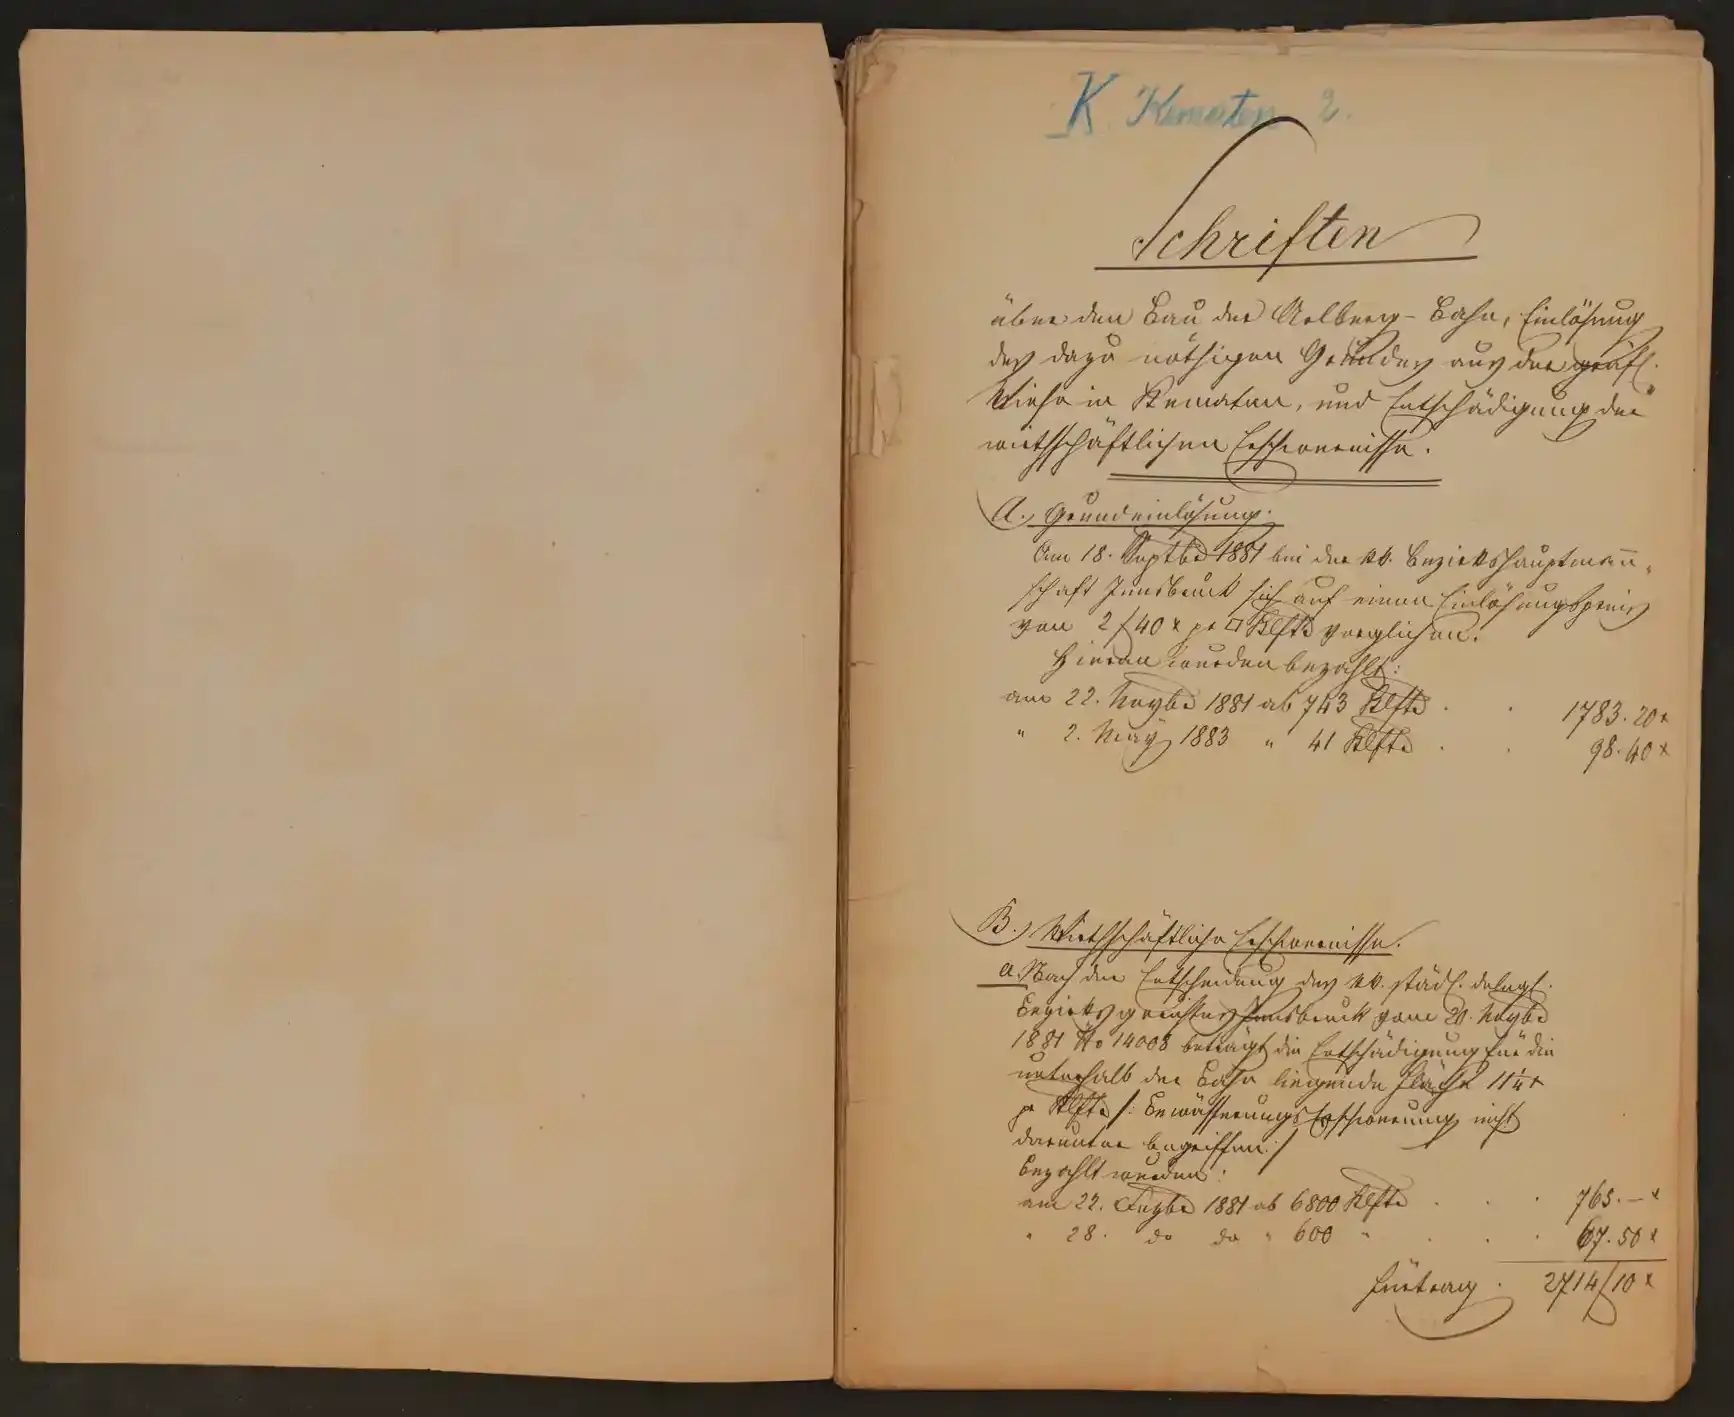 K. Kematen 2.
Schriften
über den Bau der Arlberg-Bahn, Einlösung
des dazu nöthigen Grundes aus der gräfl.
Wiese in Kematen, und Entschädigung der
wirthschäftlichen Erschwernisse.
A., Grundeinlösung.
Am 18. Septbr 1881 bei der kk. Bezirkshauptmann„
schaft Innsbruck sich auf einen Einlösungspreis
von 2 f 40 x pr □ Klftr verglichen.
Hieran wurden bezahlt:
am 22. Novbr 1881 ab 743 Klftr . . 1783. 20 x
" 2. May 1883 " 41 Klftr . . 98. 40 x
B., Wirthschäftliche Erschwernisse.
a. Nach der Entscheidung des kk. städt. delegt.
Bezirksgerichtes Innsbruck vom 20. Novbr
1881 No 14003 beträgt die Entschädigung für die
unterhalb der Bahn liegende Fläche 11¼ x
pr Klftr /: Bewässerungs Erschwerung nicht
darunter begriffen :/
Bezahlt wurden:
am 22. Novbr 1881 ab 6800 Klftr . . . 765. — x
" 28. do do " 600 " . . . 67. 50 x
Fürtrag . 2714 f 10 x